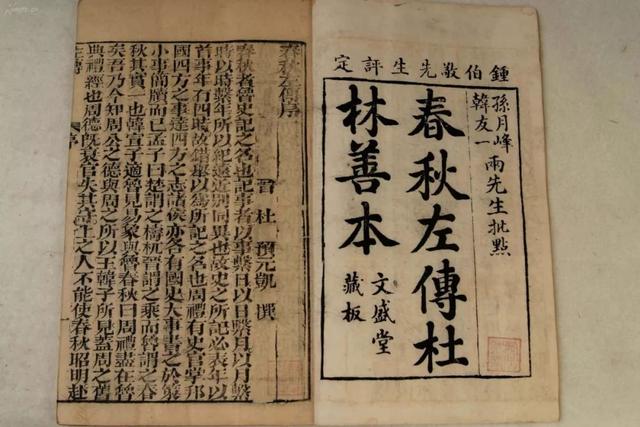 鍾伯敬先生評定
孫月峰
韓友一
兩先生批點
春秋左傳杜
林善本
文盛堂
藏板
春秋左傳序
晉 杜 預元凱 撰
春秋者魯史記之名也記事者以事繫日以日繫月以月繫
時以時繫年所以紀遠近別同異也故史之所記必表年以
首事年有四時故錯舉以爲所記之名也周禮有史官掌邦
國四方之事達四方之志諸侯亦各有國史大事書之於策
小事簡牘而已孟子曰楚謂之檮杌晉謂之乘而魯謂之春
秋其實一也韓宣子適魯見易象與魯春秋曰周禮盡在魯
矣吾乃今知周公之德與周之所以王韓子所見蓋周之舊
典禮經也周德旣衰官失其守上之人不能使春秋昭明赴
左傳 序